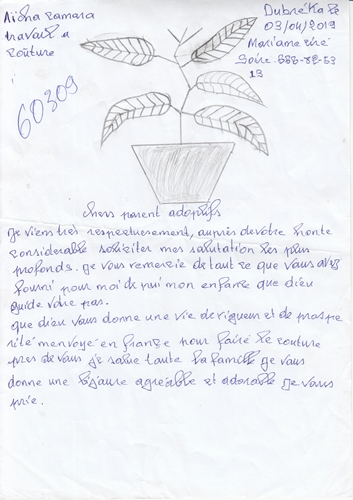 Aicha camara
travail a
couture
Dubréka le
03/04/2019
Mariame ciré
Soire. 688-82-53
13
60309
chers parent adoptifs
je viens très respectueusement, auprès de votre honte
considerable soliciter mes salutation les plus
profonds. je vous remercie de tant ce que vous avez
fourni pour moi de pui mon enfance que dieu
guide votre pas.
que dieu vous donne une vie de vigueur et de prospe
rité menvoyé en france pour faire le couture
pres de vous je salue toute la famille je vous
donne une bijoure agréable et adorable je vous
prie.